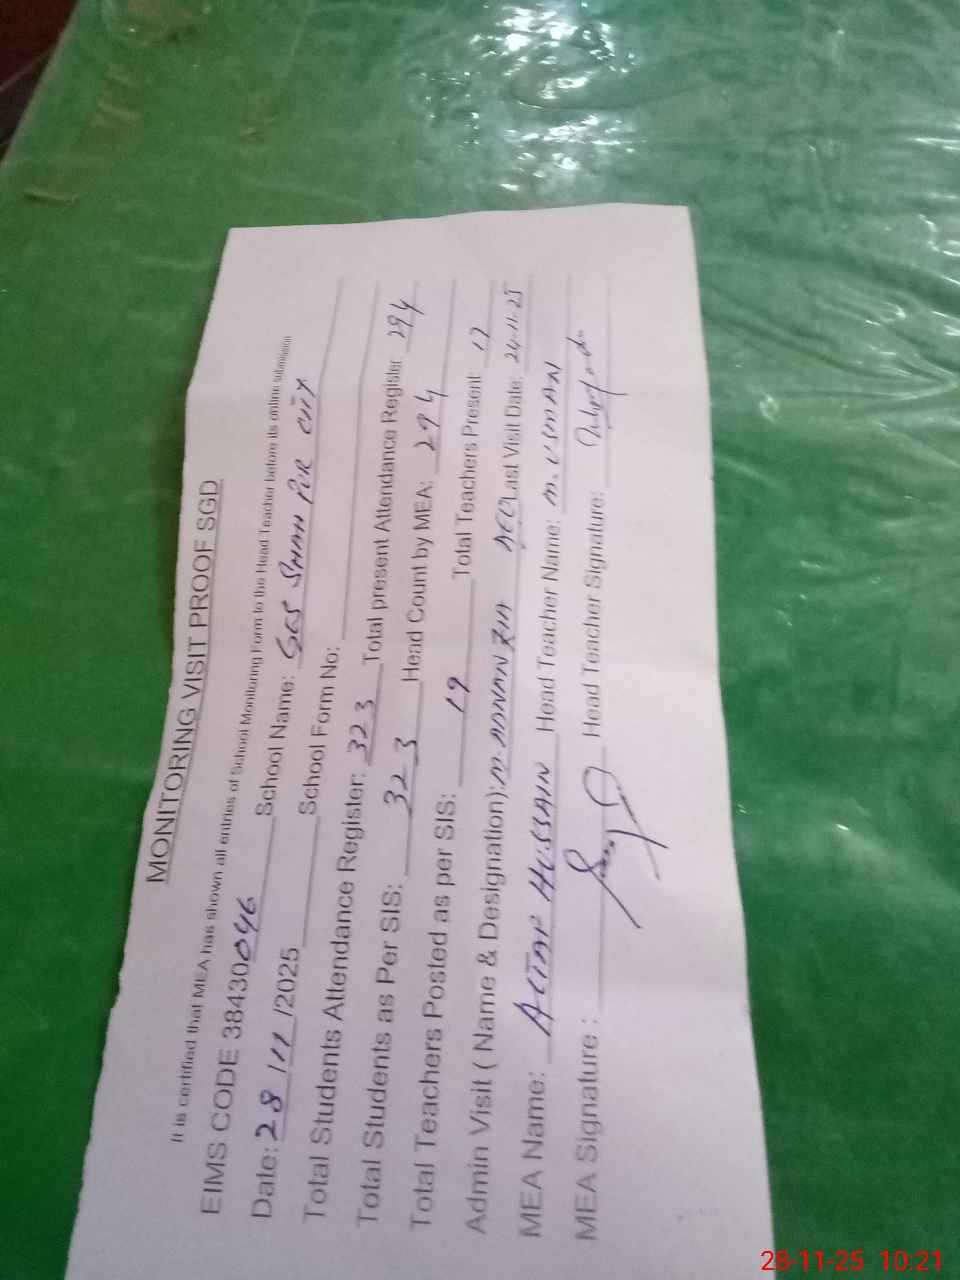 MONITORING VISIT PROOF SGD
It is certified that MEA has shown all entries of School Monitoring Form to the Head Teacher before its online submission
EIMS CODE 38430046 School Name: GES SHAH PUR CITY
Date: 28/11/2025 School Form No:
Total Students Attendance Register: 323 Total present Attendance Register 294
Total Students as Per SIS: 323 Head Count by MEA: 294
Total Teachers Posted as per SIS: 19 Total Teachers Present: 17
Admin Visit ( Name & Designation): M. ADNAN ZIA Last Visit Date: 24-11-25
MEA Name: ALTAF HUSSAIN Head Teacher Name: M. USMAN
MEA Signature : Head Teacher Signature:
28-11-25 10:21